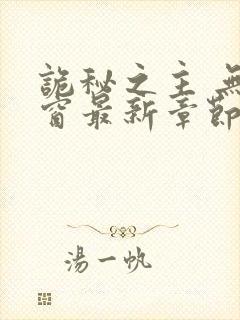 詭秘之主 無
窗最新章節
湯一帆